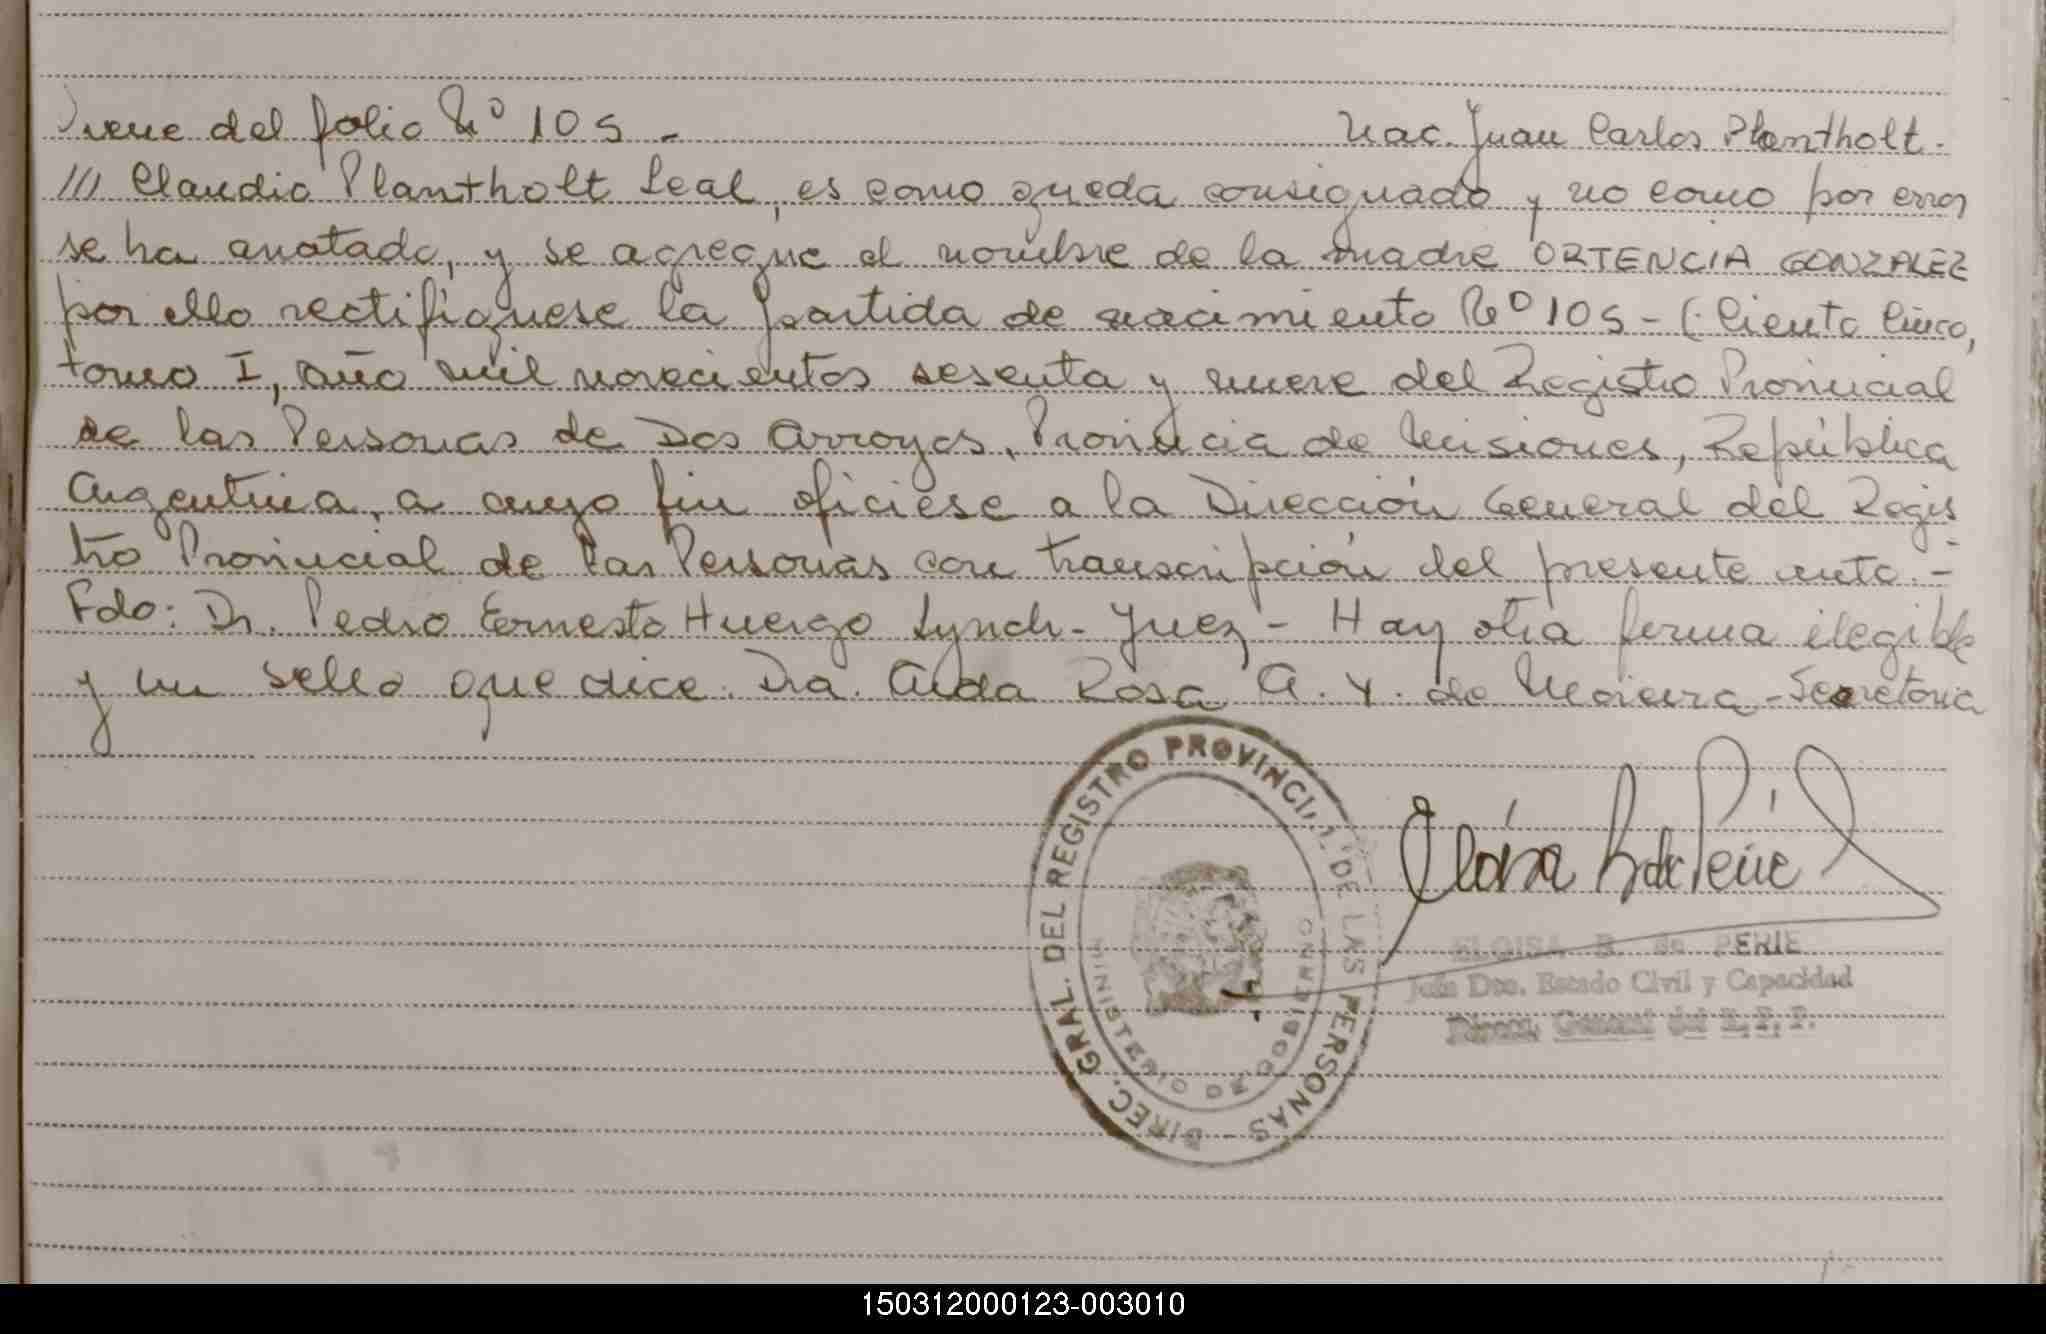 Viene del folio Nº 105 - Nac. Juan Carlos Plantholt.
/// Claudio Plantholt Leal, es como queda consignado y no como por error
se ha anotado, y se agregue el nombre de la madre ORTENCIA GONZALEZ
por ello rectifíquese la partida de nacimiento Nº 105 - (Ciento Cinco,
tomo I, año mil novecientos sesenta y nueve del Registro Provincial
de las Personas de Dos Arroyos, Provincia de Misiones, República
Argentina, a cuyo fin ofíciese a la Dirección General del Regis
tro Provincial de las Personas con transcripción del presente auto.-
Fdo: Dr. Pedro Ernesto Huergo Lynch - Juez - Hay otra firma ilegible
y un sello que dice. Dra. Aida Rosa A. Y. de Moreira - Secretaria
DIREC. GRAL. DEL REGISTRO PROVINCIAL DE LAS PERSONAS
MINISTERIO DE GOBIERNO
ELOISA B. de PERIE
Jefe Dto. Estado Civil y Capacidad
General del R. P. P.
150312000123-003010